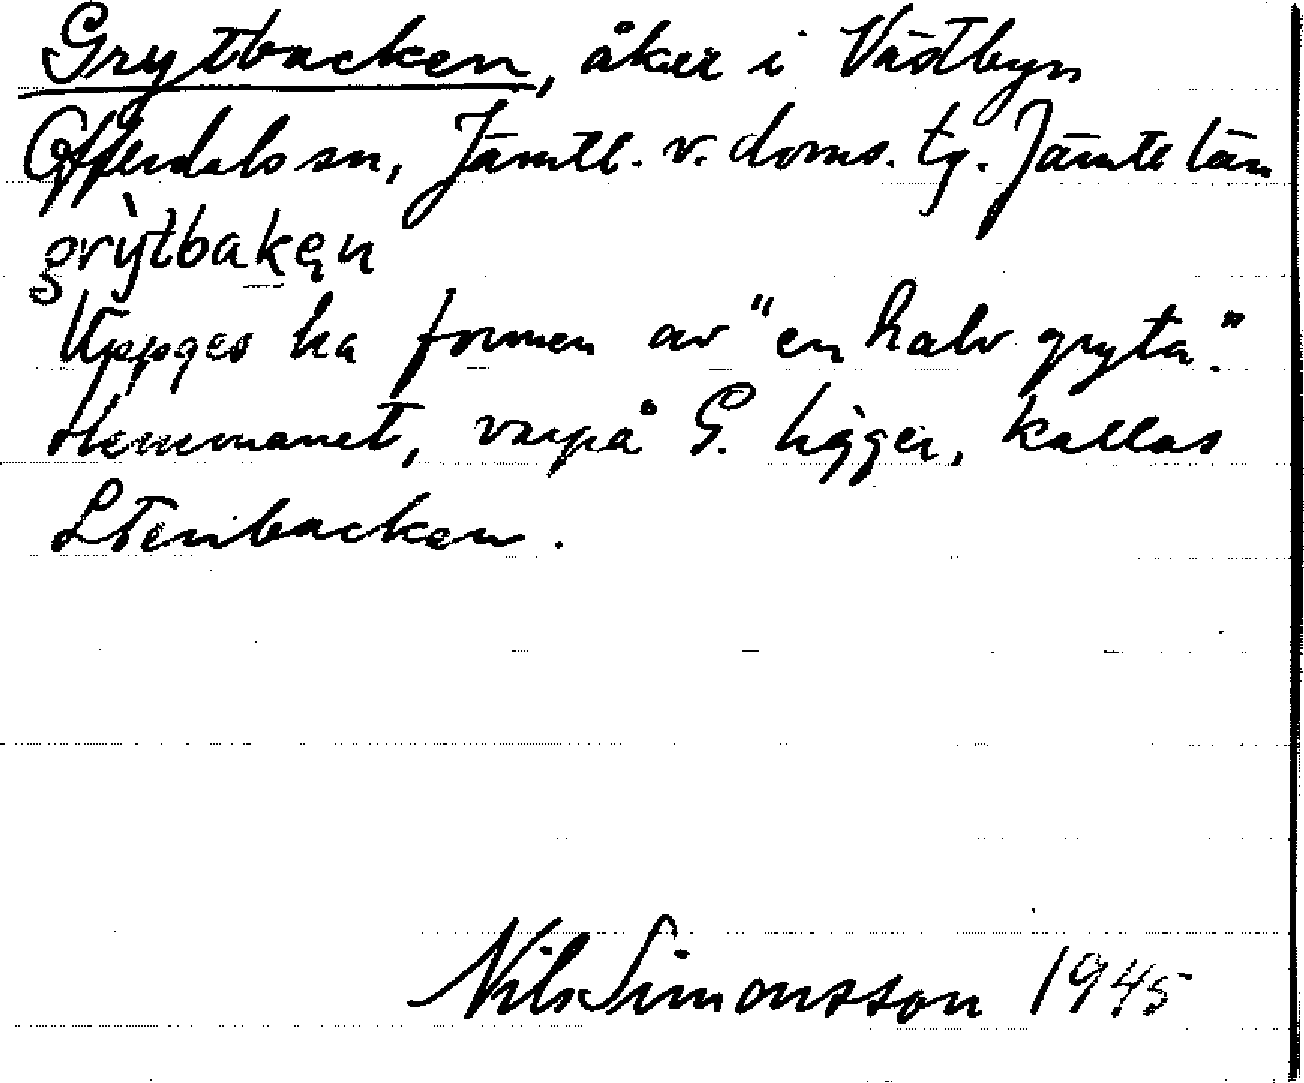 Grytbacken, åker i Västbyn
Offerdals sn, Jämtl. v. doms. tg. Jämtl län
grỳtbakęn
Uppges ha formen av "en halv gryta."
Hemmanet, varpå G. ligger, kallas
Stenbacken.
Nils Simonsson 1945